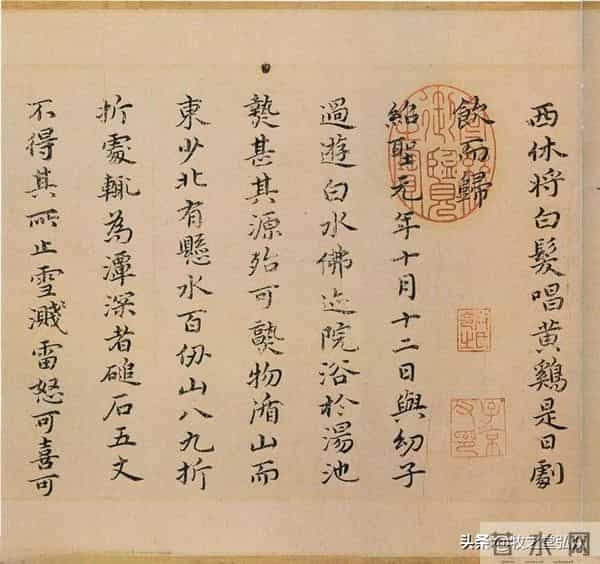 西休将白髮唱黄鷄是日劇
飲而歸
紹聖元年十月十二日與幼子
過遊白水佛迹院浴於湯池
熱甚其源殆可熟物循山而
東少北有懸水百仞山八九折
折處輒為潭深者磓石五丈
不得其所止雪濺雷怒可喜可
御覽
子京父印
头条@牧之堂弘